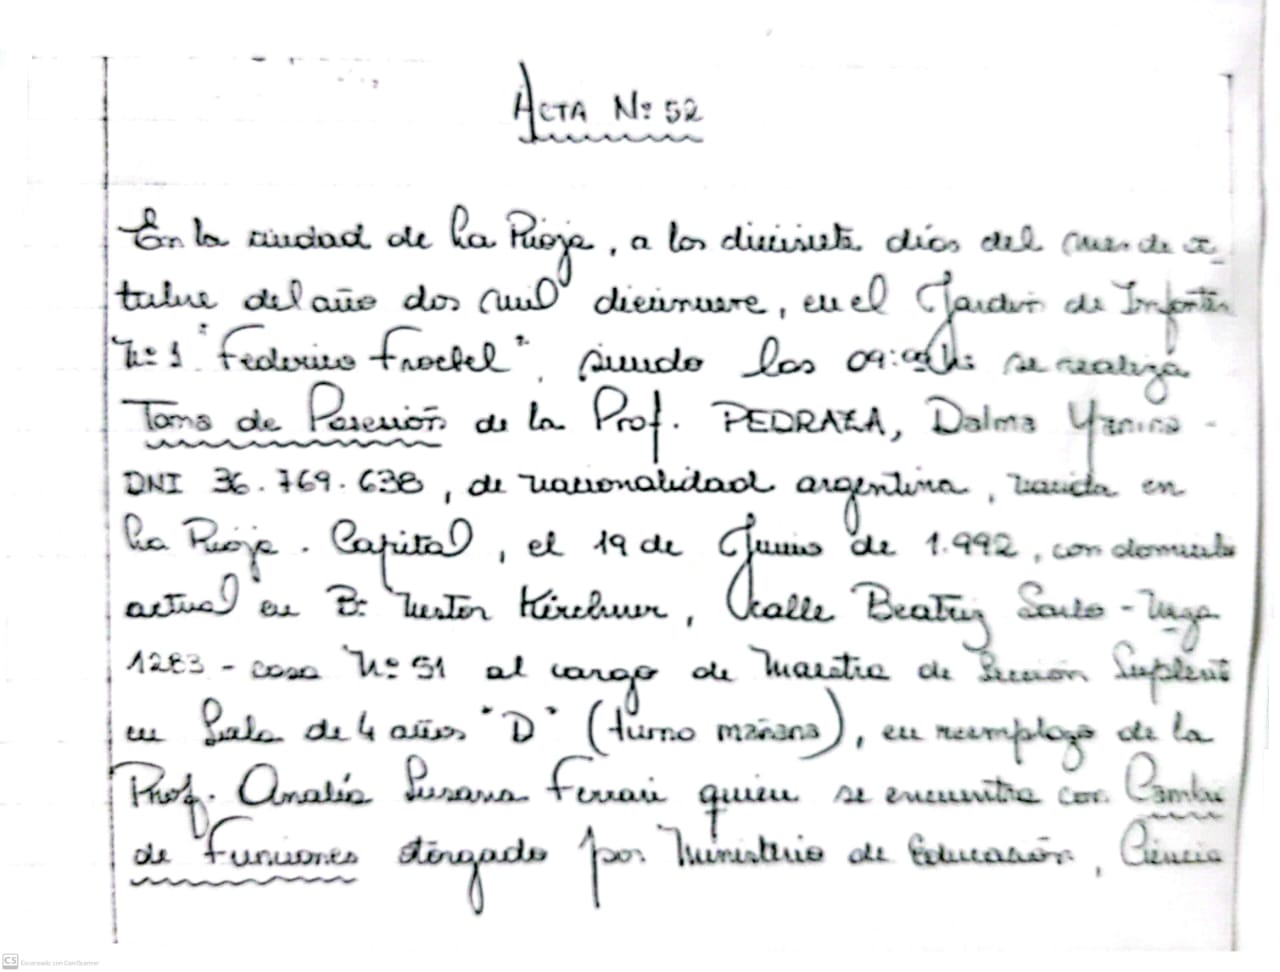 ACTA Nº 52
En la ciudad de La Rioja, a los diecisiete días del mes de oc-
tubre del año dos mil diecinueve, en el Jardín de Infantes
Nº 1 "Federico Froebel", siendo las 09:00 hs se realiza
Toma de Posesión de la Prof. PEDRAZA, Dalma Yanina -
DNI 36.769.638, de nacionalidad argentina, nacida en
La Rioja - Capital, el 19 de Junio de 1.992, con domicilio
actual en Bº Nestor Kirchner, calle Beatriz Sarlo - Mza
1283 - casa Nº 51 al cargo de Maestra de Sección Suplente
en Sala de 4 años "D" (turno mañana), en reemplazo de la
Prof. Analía Susana Ferrari quien se encuentra con Cambio
de Funciones otorgado por Ministerio de Educación, Ciencia
CS Escaneado con CamScanner